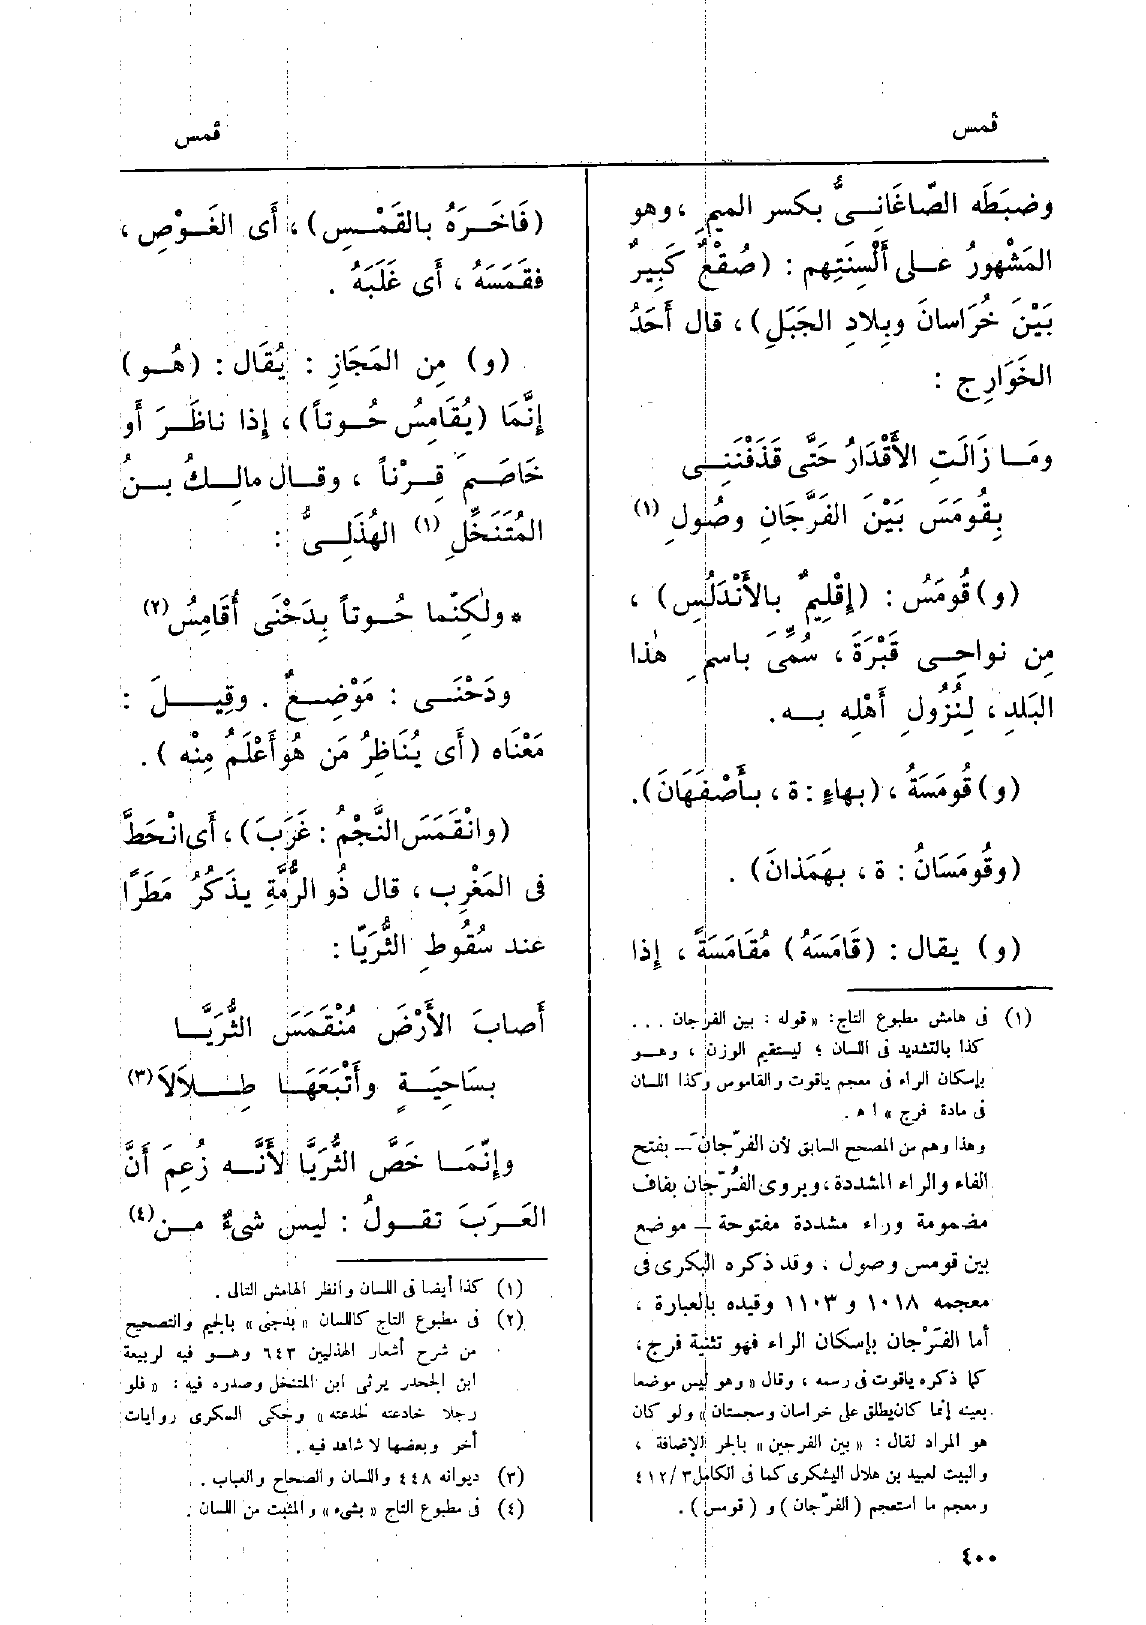 قمس
قمس
وضبَطَه الصّاغَانِىُّ بكسر الميمِ ، وهو
المَشْهورُ على أَلْسِنَتِهم : (صُقْعٌ كَبِيرٌ
بَيْنَ خُرَاسانَ وبِلادِ الجَبَلِ) ، قال أَحَدُ
الخَوَارِجِ :
ومَا زَالَتِ الأَقْدَارُ حَتَّى قَذَفْنَنِى
بِقُومَسَ بَيْنَ الفَرَّجَانِ وصُولِ (١)
(و) قُومَسُ : (إِقْلِيمٌ بالأَنْدَلُسِ) ،
مِن نواحِى قَبْرَةَ ، سُمِّىَ باسمِ هٰذا
البَلَدِ ، لِنُزُولِ أَهْلِه بـه .
(و) قُومَسَةُ ، (بهاءٍ : ة ، بأَصْفَهَانَ).
(وقُومَسَانُ : ة ، بهَمَذانَ) .
(و) يقال : (قَامَسَهُ) مُقَامَسَةً ، إِذا
(١) فى هامش مطبوع التاج: «قوله : بين الفرجان ...
كذا بالتشديد فى اللسان ؛ ليستقيم الوزن ، وهو
بإسكان الراء فى معجم ياقوت والقاموس وكذا اللسان
فى مادة فرج » ا ه .
وهذا وهم من المصحح السابق لأن الفرّجان – بفتح
الفاء والراء المشددة ، ويروى القُرّجان بقاف
مضمومة وراء مشددة مفتوحة – موضع
بين قومس وصول . وقد ذكره البكرى فى
معجمه ١٠١٨ و ١١٠٣ وقيده بالعبارة ،
أما الفَرْجان بإسكان الراء فهو تثنية فرج ،
كما ذكره ياقوت فى رسمه ، وقال « وهو ليس موضعا
بعينه إنما كان يطلق على خراسان وسجستان » ولو كان
هو المراد لقال : « بين الفرجين » بالجر للإضافة ،
والبيت لعبيد بن هلال اليشكرى كما فى الكامل ٤١٢/٣
ومعجم ما استعجم (الفرّجان) و (قومس) .
(فَاخَرَهُ بالقَمْسِ) ، أَى الغَوْصِ ،
فقَمَسَهُ ، أَى غَلَبَهُ .
(و) مِن المَجَازِ : يُقَال : (هُو)
إِنَّمَا (يُقَامِسُ حُوتاً) ، إِذا ناظَرَ أَو
خَاصَمَ قِرْناً ، وقال مالِكُ بنُ
المُتَنَخِّلِ (١) الهُذَلِىُّ :
* ولٰكِنَّما حُوتاً بِدَحْنَى أُقَامِسُ (٢)
ودَحْنَى : مَوْضِعٌ . وقِيلَ :
مَعْنَاه (أَى يُنَاظِرُ مَن هُو أَعْلَمُ مِنْه ) .
(وانْقَمَسَ النَّجْمُ : غَرَبَ) ، أَى انْحَطَّ
فى المَغْرِب ، قال ذُو الرُّمَّةِ يذكُرُ مَطَرًا
عند سُقُوطِ الثُّرَيَّا :
أَصابَ الأَرْضَ مُنْقَمَسَ الثُّرَيَّا
بسَاحِيَةٍ وأَتْبَعَهَا طِلاَلاَ (٣)
وإِنّمَا خَصَّ الثُّرَيَّا لأَنَّه زُعِمَ أَنَّ
العَرَبَ تقولُ : ليس شىءٌ من (٤)
(١) كذا أيضا فى اللسان وانظر الهامش التالى .
(٢) فى مطبوع التاج كاللسان « بدجنى » بالجيم والتصحيح
من شرح أشعار الهذليين ٦٤٣ وهو فيه لربيعة
ابن الجحدر يرثى ابن المتنخل وصدره فيه : « فلو
رجلا خادعته لخدعته » وحكى السكرى روايات
أخر وبعضها لا شاهد فيه .
(٣) ديوانه ٤٤٨ واللسان والصحاح والعباب .
(٤) فى مطبوع التاج « بشىء » والمثبت من اللسان .
٤٠٠